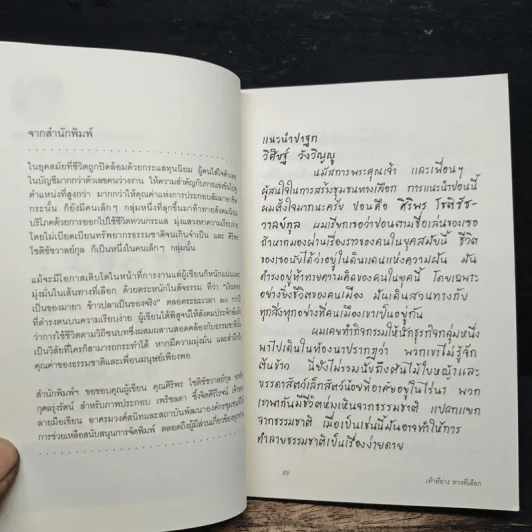 จากสำนักพิมพ์
ในยุคสมัยที่ชีวิตถูกปิดล้อมด้วยกระแสทุนนิยม ผู้คนใส่ใจตัวเลข
ในบัญชีมากกว่าตัวเลขคนว่างงาน ให้ความสำคัญกับการแข่งขัน
ตำแหน่งที่สูงกว่า มากกว่าให้คุณค่าแห่งการประกอบสัมมาอาชีพ
กระนั้น ก็ยังมีคนเล็กๆ กลุ่มหนึ่งที่ลุกขึ้นมาท้าทาย
บริโภคด้วยการออกไปใช้ชีวิตทวนกระแส มุ่งแสวงหาความ
โดยไม่เบียดเบียนทรัพยากรธรรมชาติจนเกินจำเป็น และ ศิริพร
โชติชัชวาลย์กุล ก็เป็นหนึ่งในคนเล็กๆ กลุ่มนั้น
แม้จะมีโอกาสเติบโตในหน้าที่การงานแต่ผู้เขียนก็หนักแน่นและ
มุ่งมั่นในเส้นทางที่เลือก ด้วยตระหนักในสัจธรรม ที่ว่า "เงินทอง
เป็นของมายา ข้าวปลาเป็นของจริง" ตลอดระยะเวลา ๒๐ กว่าปี
ที่ดำรงตนบนความเรียบง่าย ผู้เขียนได้พิสูจน์ให้สังคมประจักษ์แล้ว
ว่า การใช้ชีวิตตามวิถีชนบทซึ่งผสมผสานสอดคล้องกับธรรมชาตินั้น
เป็นวิสัยที่ใครก็สามารถกระทำได้ หากมีความมุ่งมั่น และสำนึก
คุณค่าของธรรมชาติและเพื่อนมนุษย์เพียงพอ
สำนักพิมพ์ฯ ขอขอบคุณผู้เขียน คุณศิริพร โชติชัชวาลย์กุล
กุศลรุ่งรัตน์ สำหรับภาพประกอบ เพรีซลดา ซึ่งจิตสิริโรจน์
ลายมือเขียน อาศรมวงศ์สนิทและสถาบันพัฒนาองค์กรชุมชน
การช่วยเหลือสนับสนุนการจัดพิมพ์ ตลอดถึงผู้มีส่วนเกี่ยวข้อง
แนะนำปาฐก
วิศิษฐ์ วังวิญญู
นมัสการพระคุณเจ้า และเพื่อนๆ
ผู้สนใจในการสร้างชุมชนทางเลือก การแนะนำป่อนนี้
ผมตั้งใจมากนะครับ ป่อนคือ ศิริพร โชติชัช-
วาลย์กุล ผมเรียกเธอว่าป่อนตามชื่อเล่นของเธอ
ถ้าหากมองผ่านเรื่องราวของคนในยุคสมัยนี้ ชีวิต
ของเธอนับได้ว่าอยู่ในดินแดนแห่งความฝัน มัน
ดำรงอยู่ท้าทายความคิดของคนในยุคนี้ โดยเฉพาะ
อย่างยิ่งชีวิตของคนเมือง มันเดินสวนทางกับ
ทุกสิ่งทุกอย่างที่คนเมืองเขาเป็นอยู่กัน
ผมเคยทำกิจกรรมให้นักธุรกิจกลุ่มหนึ่ง
พาไปเดินในท้องนาปรากฏว่า พวกเขาไม่รู้จัก
ต้นข้าว นี่ยังไม่รวมนับถึงต้นไม้ใบหญ้าและ
บรรดาสัตว์เล็กสัตว์น้อยที่อาศัยอยู่ในไร่นา พวก
เราพากันมีชีวิตห่มเหินจากธรรมชาติ แปลกแยก
จากธรรมชาติ เมื่อเป็นเช่นนี้มันอาจทำให้การ
ทำลายธรรมชาติเป็นเรื่องง่ายดาย
เท้าที่ย่าง ทางที่เลือก